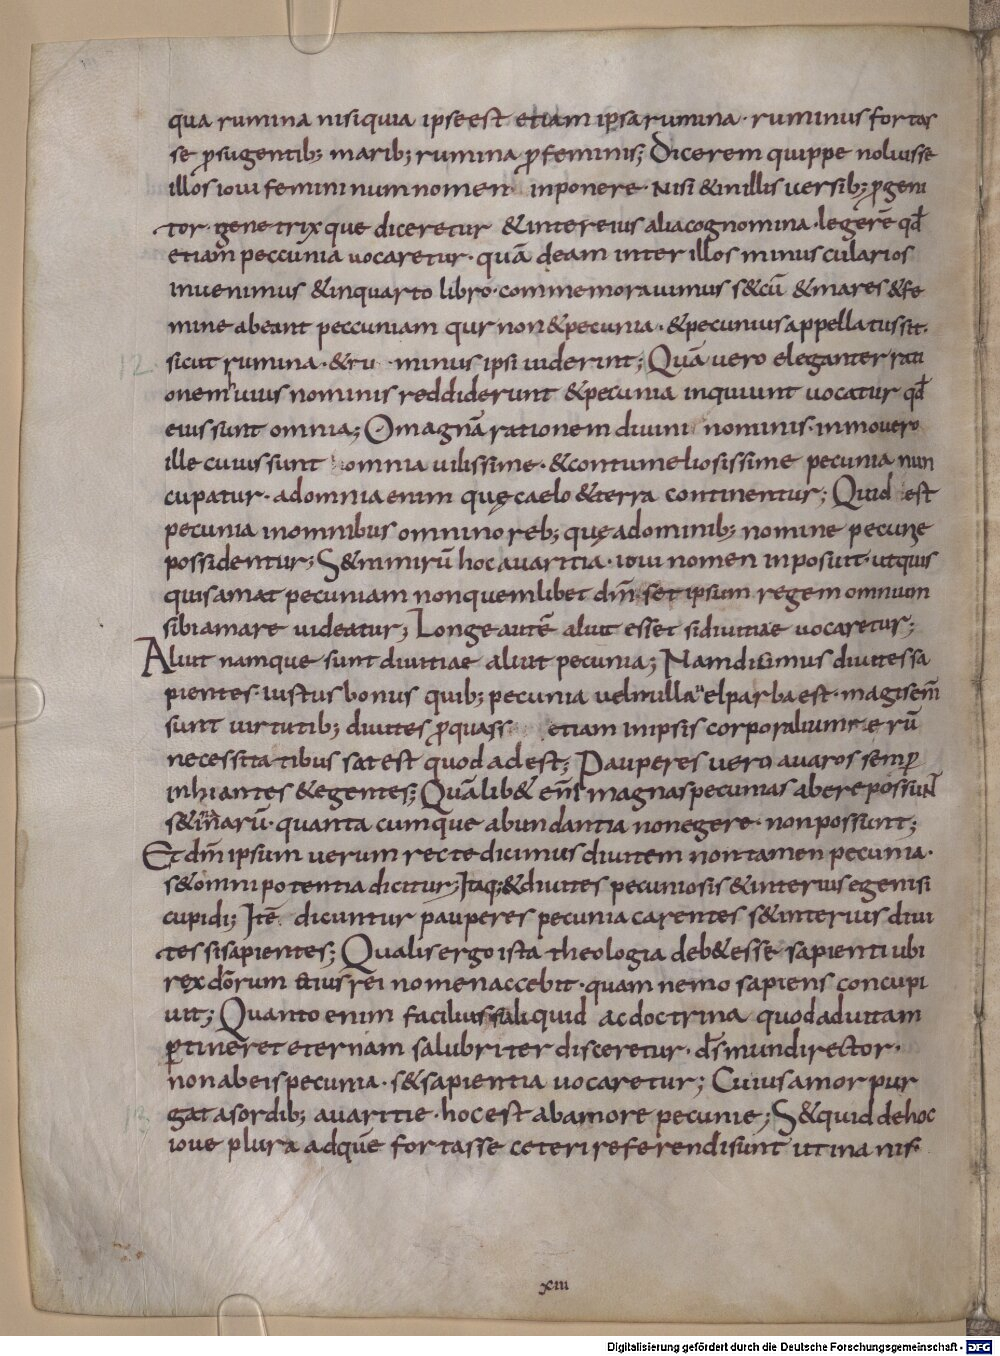 qua rumina nisi quia ipse est etiam ipsa rumina · ruminus fortas
se ꝑ sugentib; marib; rumina ꝑ feminis; Dicerem quippe noluisse
illos ioui femininum nomen inponere · Nisi & in illis uersib; ꝓgeni
tor · genetrixque diceretur & inter eius alia cognomina · legerē qđ
etiam peccunia uocaretur · quā deam inter illos minuscularios
inuenimus & in quarto libro · commemorauimus s& cū & mares & fe
mine abeant peccuniam qur non & pecunia · & pecunius appellatus sit ·
12. sicut rumina · & ru minus ipsi uiderint; Quā uero eleganter rati
onem huius nominis reddiderunt & pecunia inquiunt uocatur qđ
eius sunt omnia; O magnā rationem diuini nominis · immo uero
ille cuius sunt omnia uilissime · & contumeliosissime pecunia nun
cupatur · ad omnia enim quę caelo & terra continentur; Quid est
pecunia in omnibus omnino reb; quę ad ominib; nomine pecunie
possidentur; S& nimirū hoc auaritia · ioui nomen inposuit · ut quis
quis amat pecuniam non quemlibet dm̄ · set ipsum regem omnium
sibi amare uideatur; Longe autē aliut esset si diuitiae uocaretur;
Aliut namque sunt diuitiae aliut pecunia; Nam dicimus diuites sa
pientes · iustus bonus quib; pecunia uel nulla uel parba est · magis em̄
sunt uirtutib; diuites ꝑ quas etiam in ipsis corporalium rerū
necessitatibus sat est quod adest; Pauperes uero auaros semꝑ
inhiantes & egentes; Quālib& eni magnas pecunias abere possunt
s& in earū · quanta cumque abundantia non egere · non possunt;
Et dm̄ ipsum uerum recte dicimus diuitem non tamen pecunia ·
s& omnipotentia dicitur; Itaq; & diuites pecuniosi s& interius egeni si
cupidi; Itē dicuntur pauperes pecunia carentes s& interius diui
tes si sapientes; Qualis ergo ista theologia deb& esse sapienti ubi
rex dōrum eius rei nomen accebit · quam nemo sapiens concupi
uit; Quanto enim facilius si aliquid ac doctrina quod ad uitam
ꝑtineret eternam salubriter disceretur · ds̄ mundi rector ·
non ab eis pecunia · s& sapientia uocaretur; Cuius amor pur
13 gat a sordib; auaritie · hoc est ab amore pecunie; S& quid de hoc
ioue plura ad quē fortasse ceteri referendi sunt ut inanis
xiii
Digitalisierung gefördert durch die Deutsche Forschungsgemeinschaft - DFG